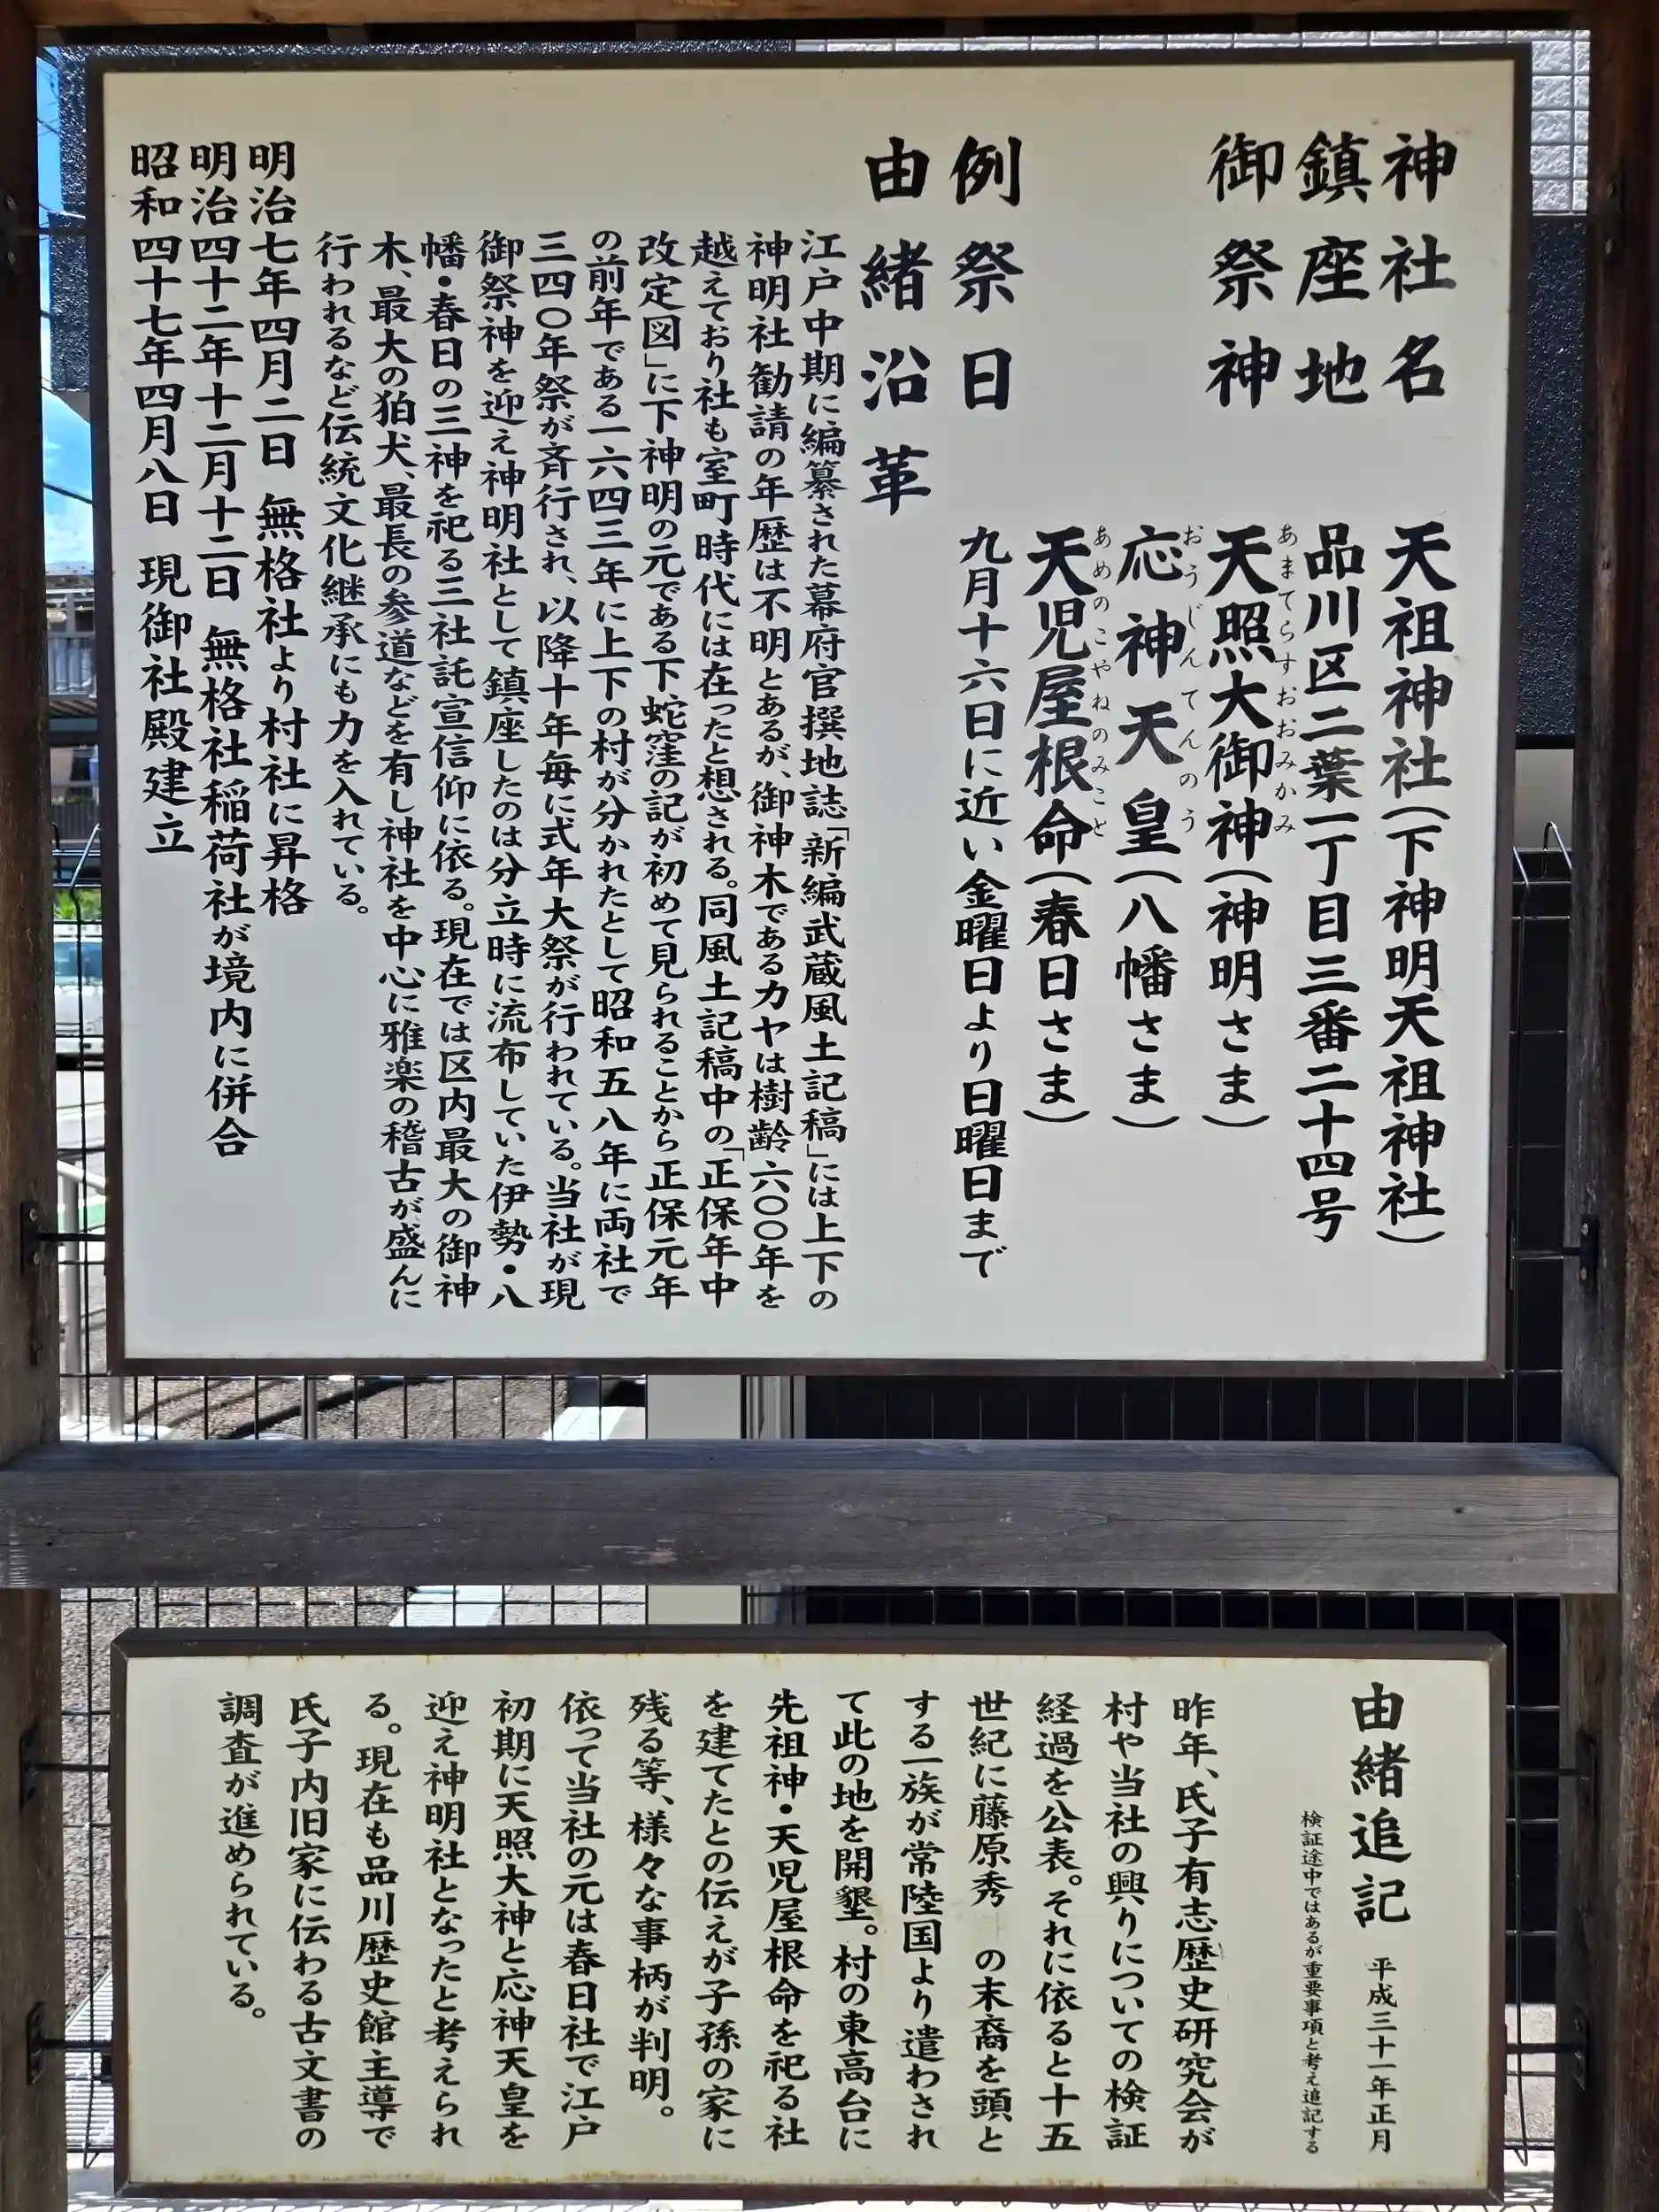 神社名　天祖神社（下神明天祖神社）
鎮座地　品川区二葉一丁目三番二十四号
御祭神　天照大御神（神明さま）
あまてらすおおみかみ
応神天皇（八幡さま）
おうじんてんのう
天児屋根命（春日さま）
あめのこやねのみこと
例祭日　九月十六日に近い金曜日より日曜日まで
由緒沿革
江戸中期に編纂された幕府官撰地誌「新編武蔵風土記稿」には上下の
神明社勧請の年歴は不明とあるが、御神木であるカヤは樹齢六〇〇年を
越えており社も室町時代には在ったと想される。同風土記稿中の「正保年中
改定図」に下神明の元である下蛇窪の記が初めて見られることから正保元年
の前年である一六四三年に上下の村が分かれたとして昭和五八年に両社で
三四〇年祭が斉行され、以降十年毎に式年大祭が行われている。当社が現
御祭神を迎え神明社として鎮座したのは分立時に流布していた伊勢・八
幡・春日の三神を祀る三社託宣信仰に依る。現在では区内最大の御神
木、最大の狛犬、最長の参道などを有し神社を中心に雅楽の稽古が盛んに
行われるなど伝統文化継承にも力を入れている。
明治七年四月二日　無格社より村社に昇格
明治四十二年十二月十二日　無格社稲荷社が境内に併合
昭和四十七年四月八日　現御社殿建立
由緒追記　平成三十一年正月
検証途中ではあるが重要事項と考え追記する
昨年、氏子有志歴史研究会が
村や当社の興りについての検証
経過を公表。それに依ると十五
世紀に藤原秀　の末裔を頭と
する一族が常陸国より遣わされ
て此の地を開墾。村の東高台に
先祖神・天児屋根命を祀る社
を建てたとの伝えが子孫の家に
残る等、様々な事柄が判明。
依って当社の元は春日社で江戸
初期に天照大神と応神天皇を
迎え神明社となったと考えられ
る。現在も品川歴史館主導で
氏子内旧家に伝わる古文書の
調査が進められている。